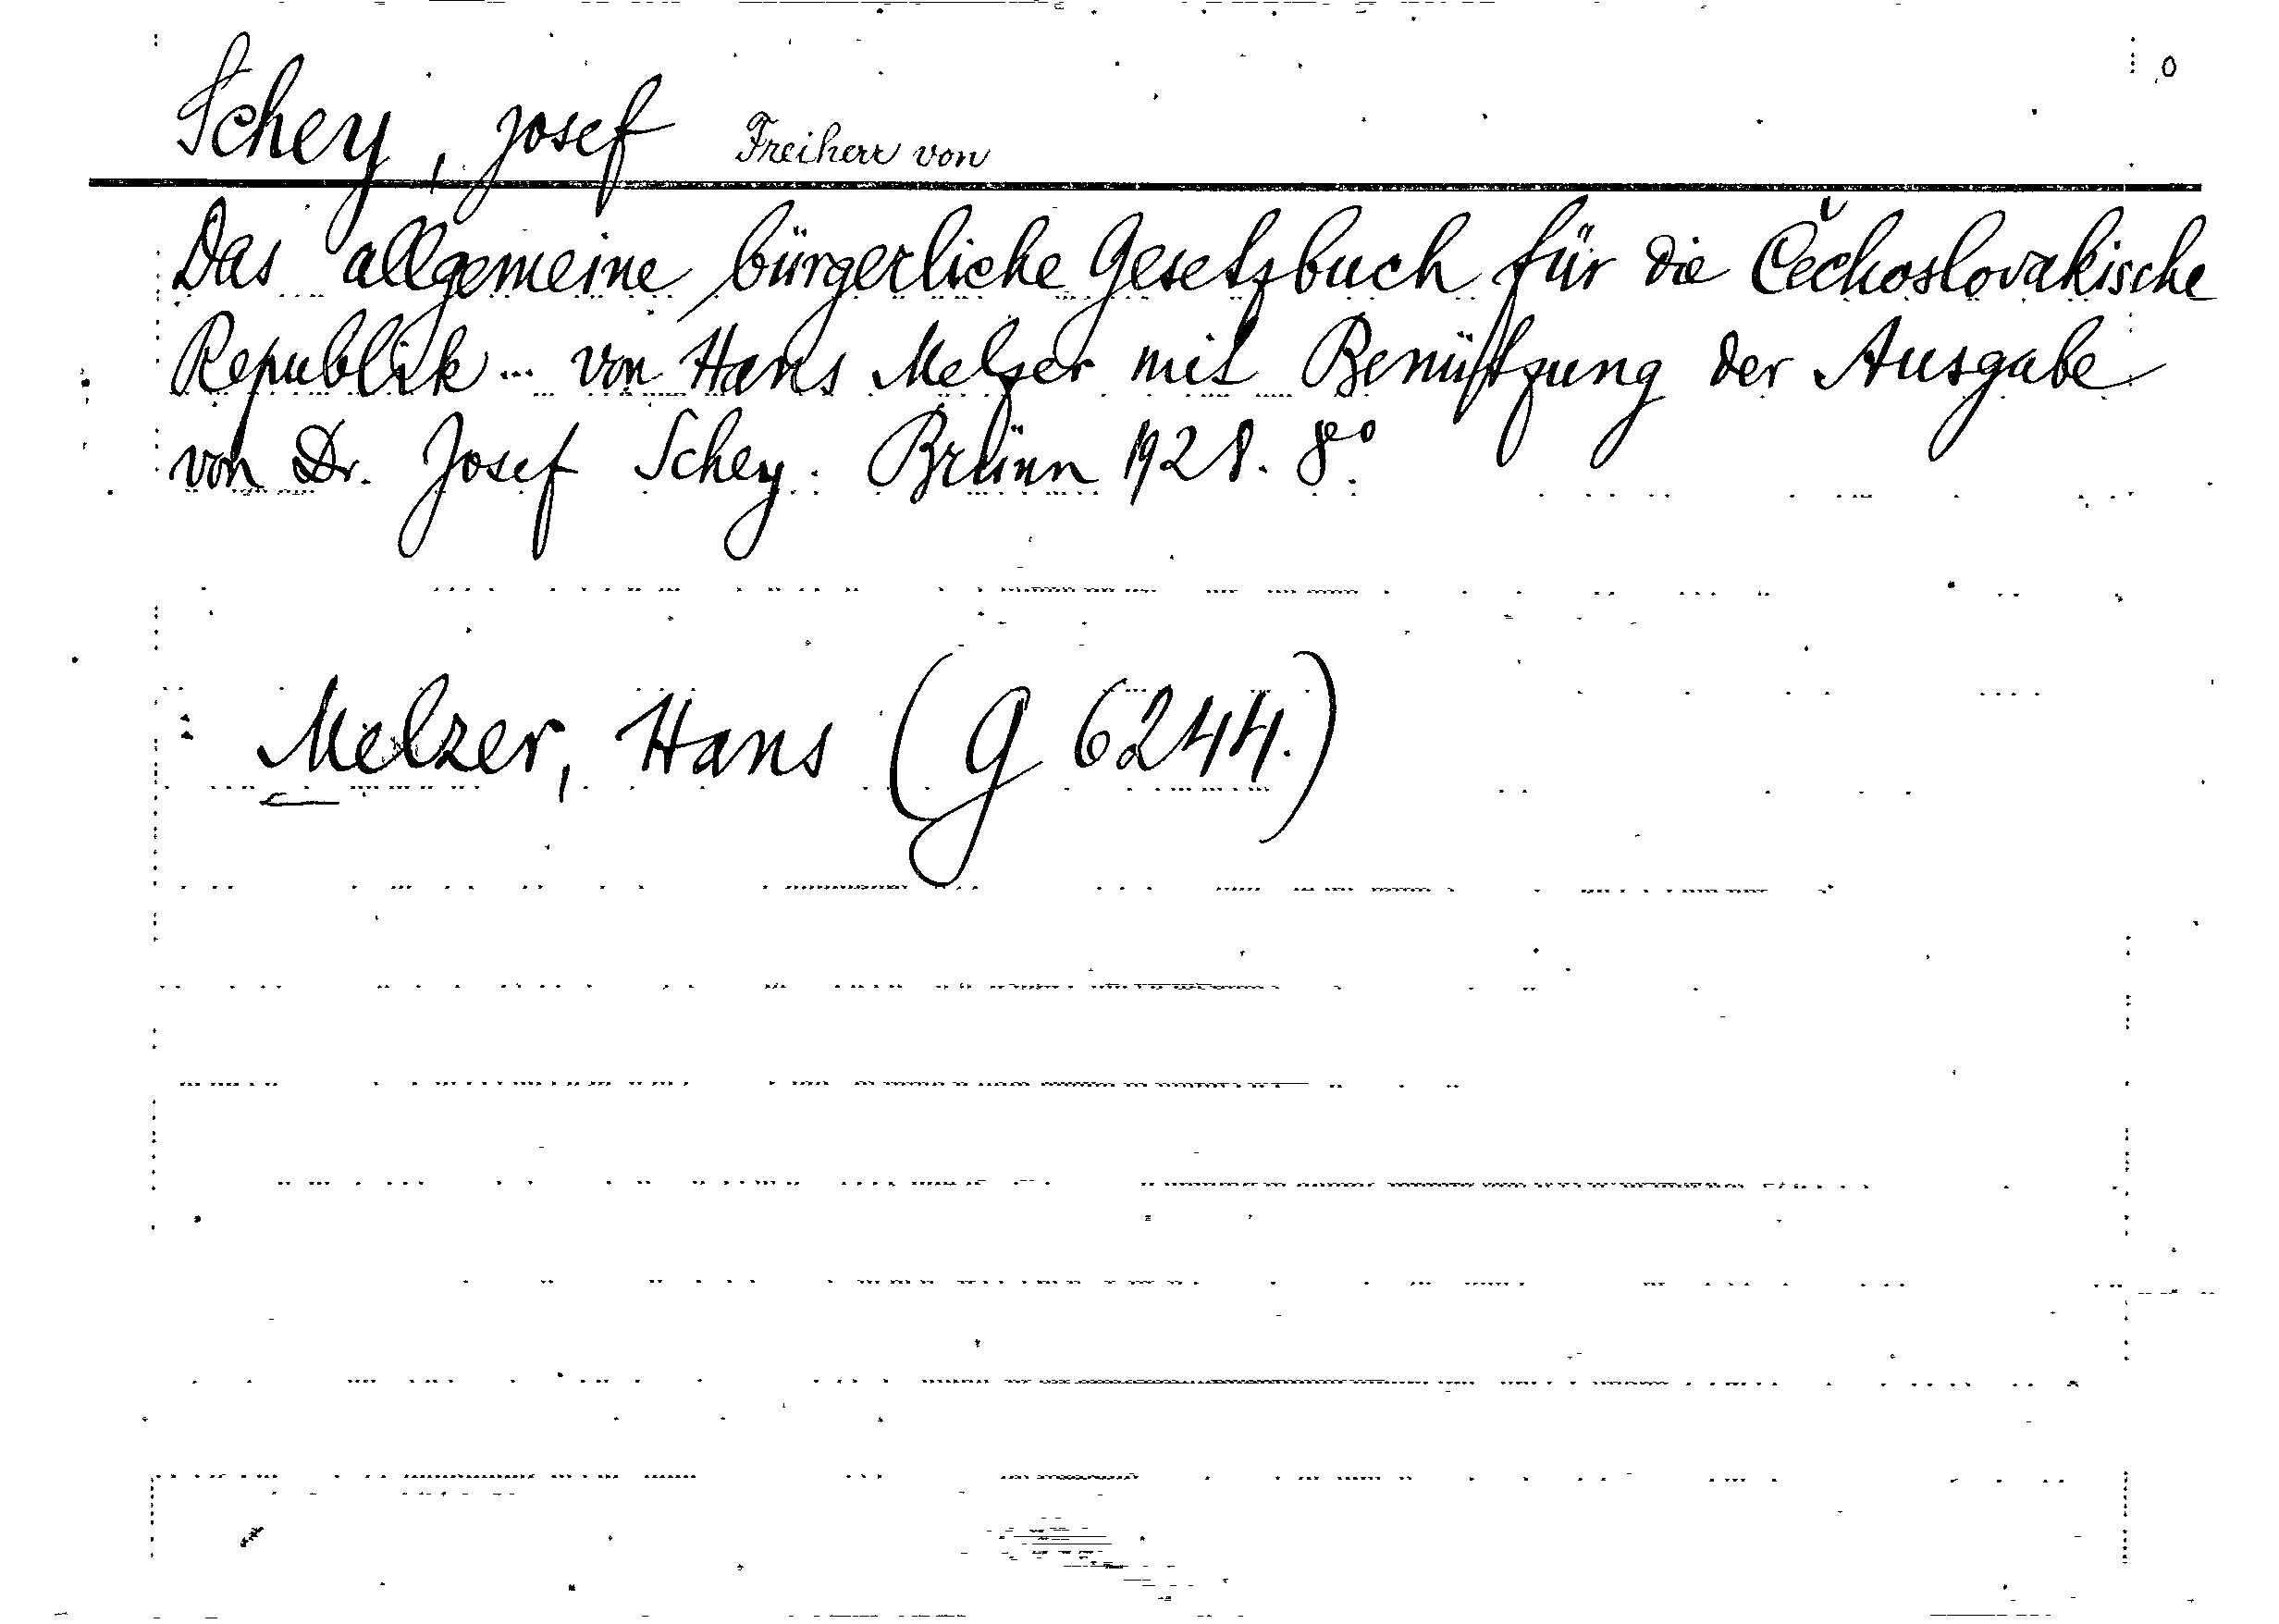 Schey, Josef Freiherr von
Das allgemeine bürgerliche Gesetzbuch für die Čechoslovakische
Republik ... von Hans Melzer mit Benützung der Ausgabe
von Dr. Josef Schey. Brünn 1928. 8°.
: Melzer, Hans (G 6244.)